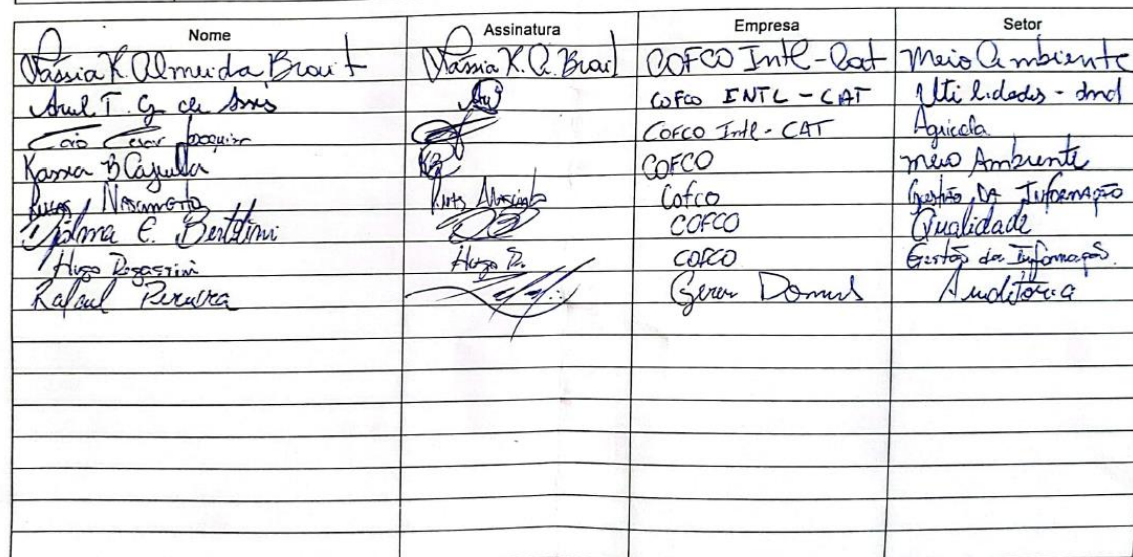 Nome Assinatura Empresa Setor
K. Almeida Brait K. A. Brait COFCO Intl-Cat Meio Ambiente
T. G. de COFCO INTL - CAT Utilidades - Ind
Caio Cesar Joaquim COFCO Intl - CAT Agricola
B COFCO Meio Ambiente
Lucas Nascimento Nascimento Cofco Gestão DA Informação
E. Bertolini COFCO Qualidade
Hugo Hugo COFCO Gestão da Informação.
Rafael Pereira Auditoria